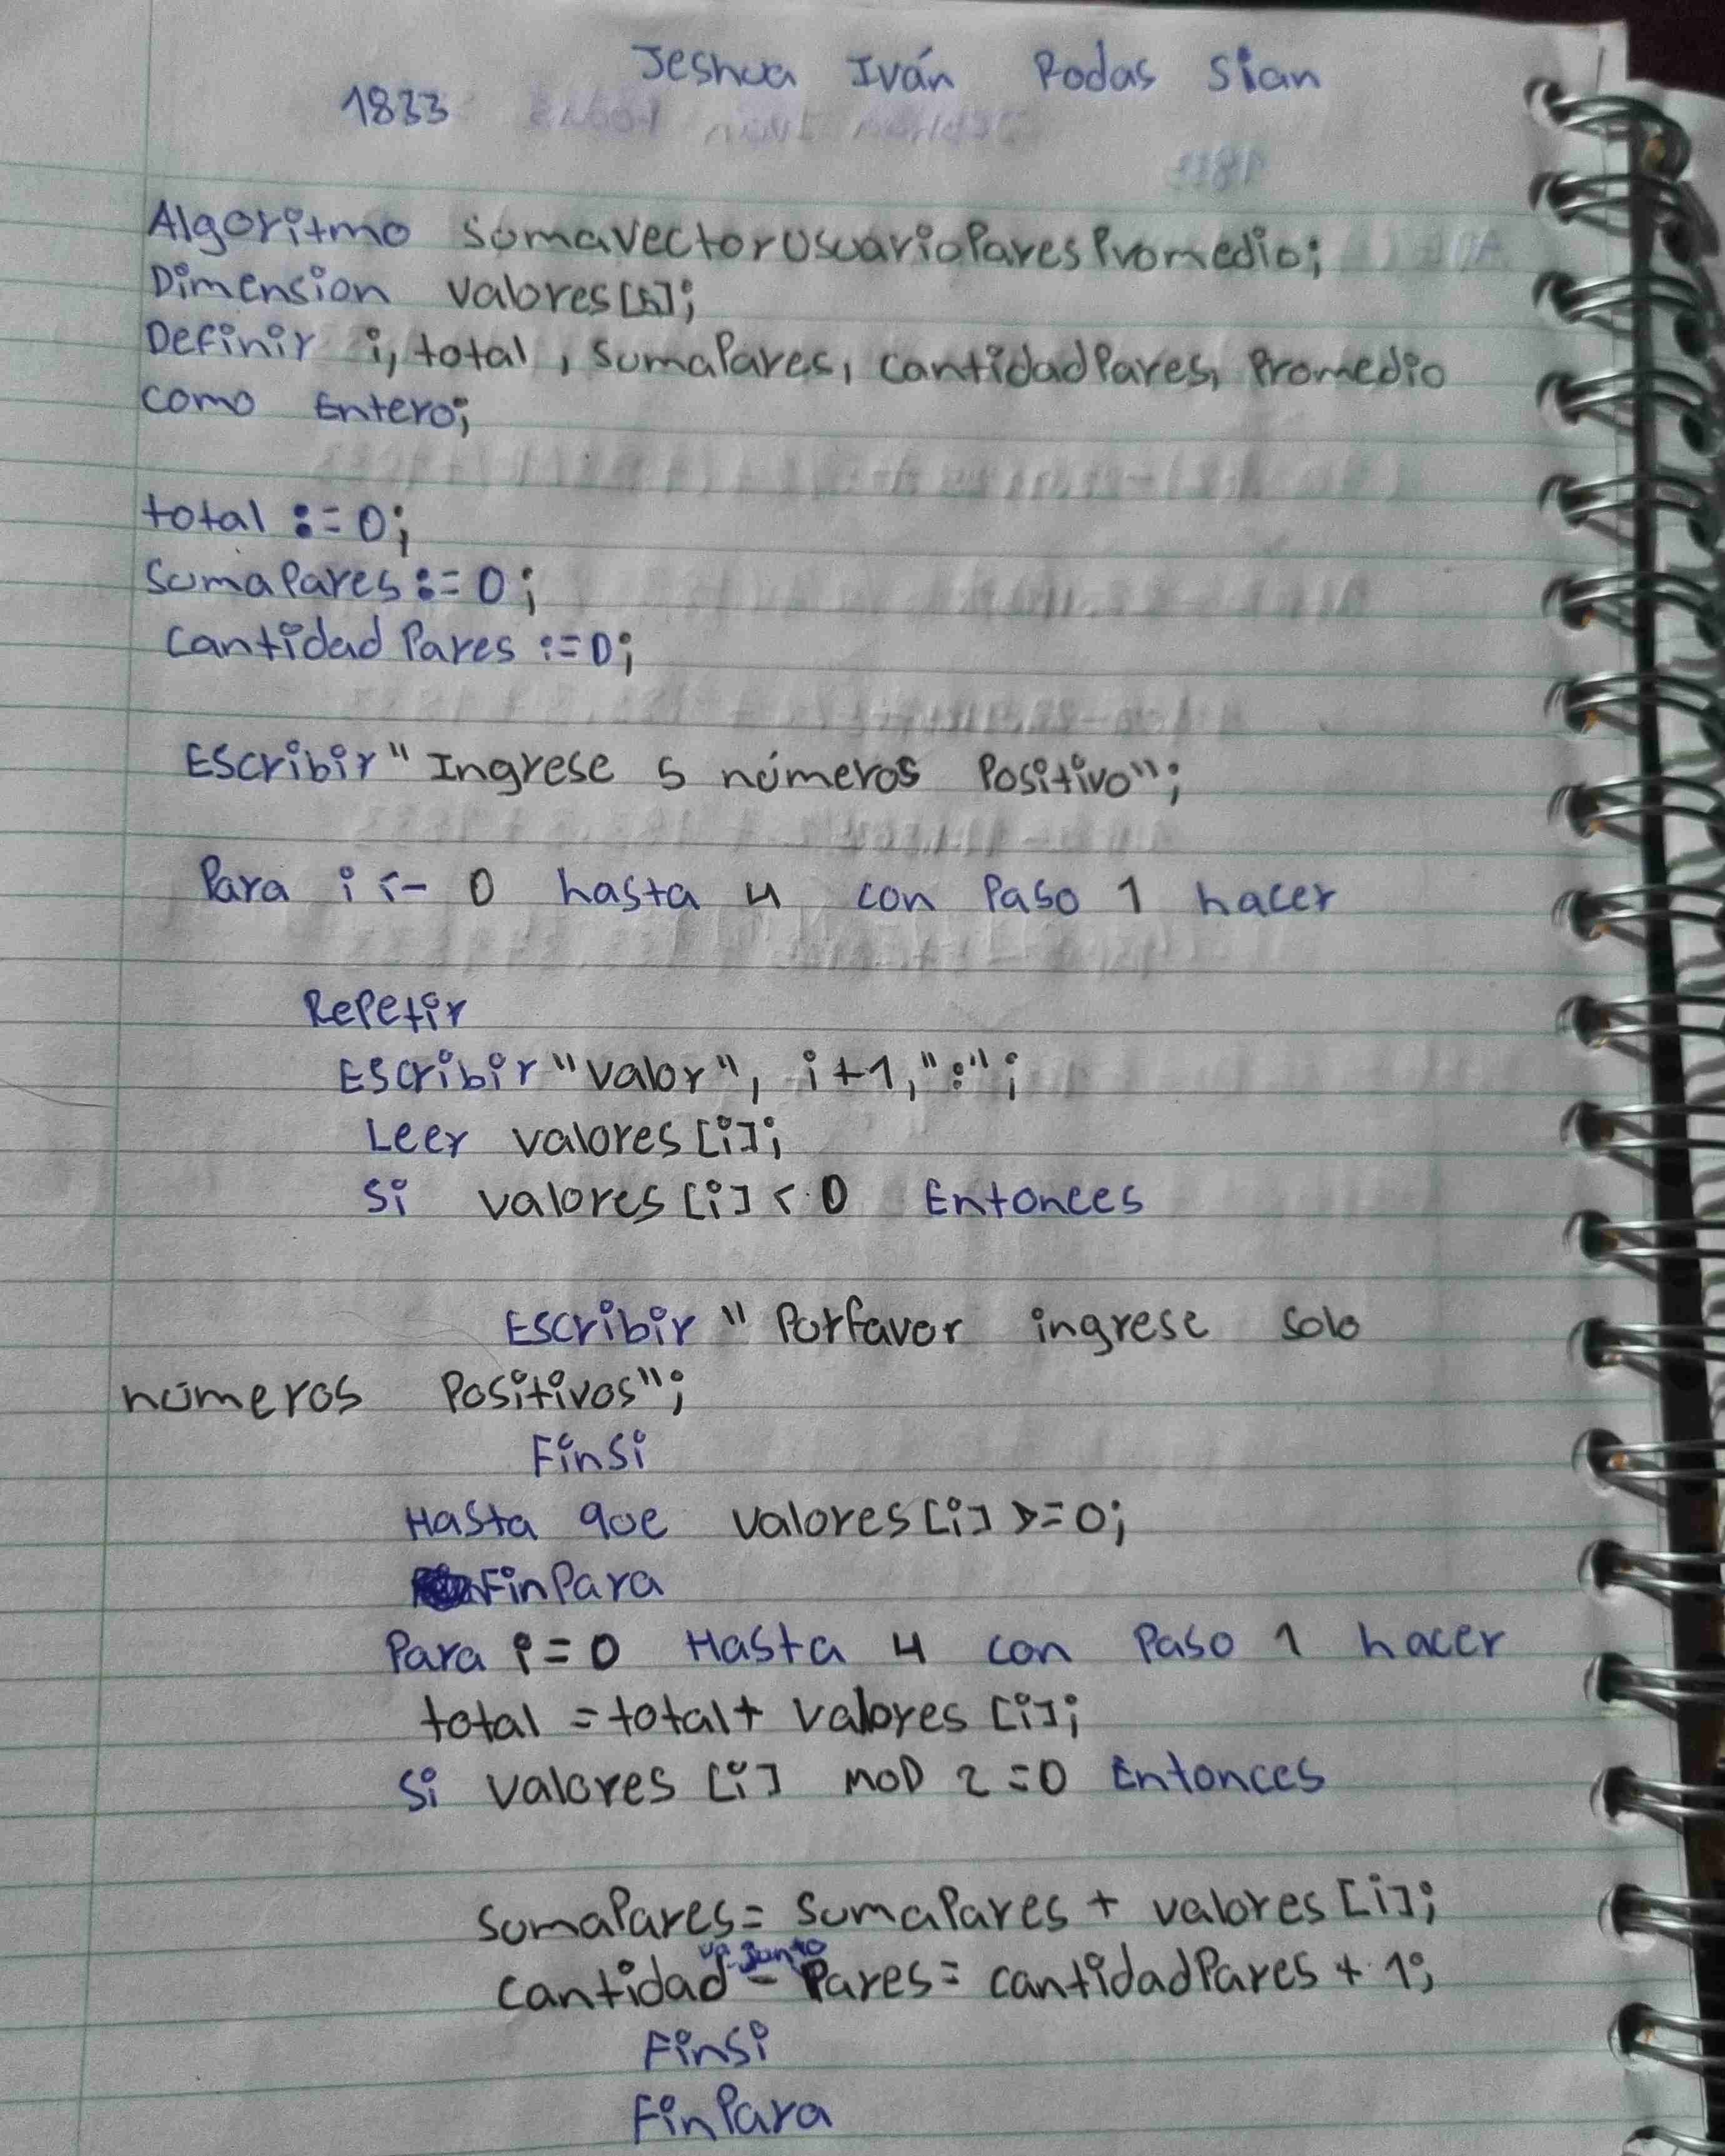 Jeshua Iván Rodas Sian
1833
Algoritmo SumaVectorUsuarioParesPromedio;
Dimension valores[5];
Definir i, total, sumaPares, cantidadPares, Promedio
como Entero;
total := 0;
SumaPares := 0;
CantidadPares := 0;
Escribir "Ingrese 5 números Positivo";
Para i <- 0 hasta 4 con Paso 1 hacer
Repetir
Escribir "valor", i+1, ":";
Leer valores[i];
Si valores[i] < 0 Entonces
Escribir "Porfavor ingrese solo
números Positivos";
FinSi
Hasta que valores[i] >= 0;
FinPara
Para i = 0 Hasta 4 con Paso 1 hacer
total = total + valores[i];
Si valores[i] MOD 2 = 0 Entonces
sumaPares = sumaPares + valores[i];
va junto
cantidad - Pares = cantidadPares + 1;
FinSi
FinPara